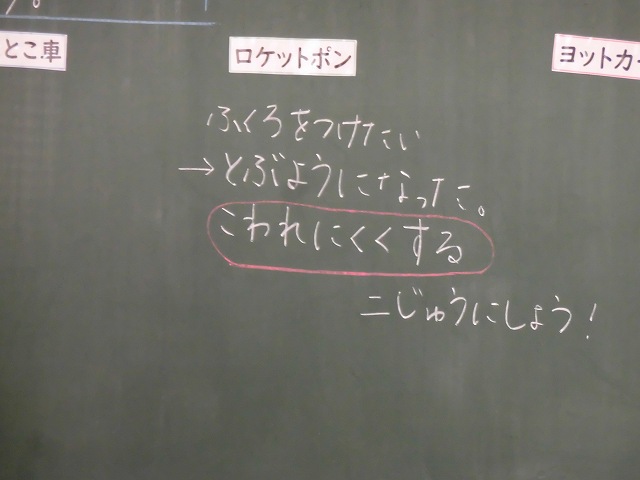 とこ車
ロケットポン
ヨットカー
ふくろをつけたい
→とぶようになった。
こわれにくくする
二じゅうにしよう!